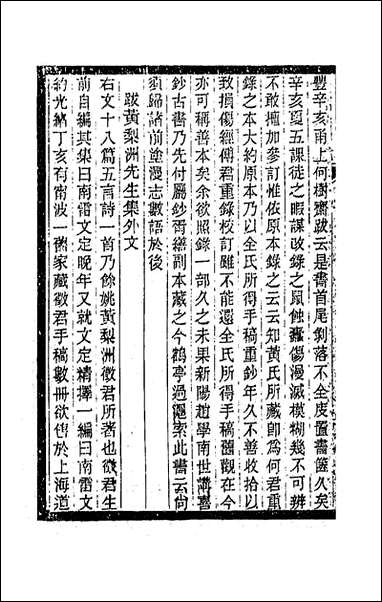 豐辛亥甬上何樹齋跋云是書首尾剝落不全庋置書篋久矣
辛亥夏五課徒之暇謀改錄之鼠蝕蠹傷漫滅模糊幾不可辨
不敢擅加參訂惟依原本錄之云云知黃氏所藏卽爲何君重
錄之本大約原本乃以全氏所得手稿重鈔年久不善收拾以
致損傷經傅君重錄校訂雖不能還全氏所得手稿舊觀在今
亦可稱善本矣余欲照錄一部久之未果新陽趙學南世講喜
鈔古書乃先付屬鈔胥繕副本藏之今鶴亭過滬索此書云尙
須歸諸前塗漫志數語於後
跋黃梨洲先生集外文
右文十八篇五言詩一首乃餘姚黃梨洲徵君所著也徵君生
前自編其集曰南雷文定晚年又就文定精擇一編曰南雷文
約光緖丁亥有甯波一舊家藏徵君手稿數冊欲售於上海道